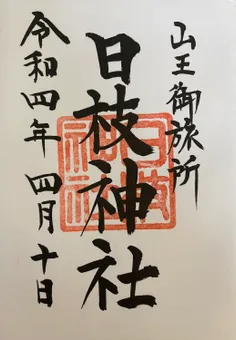 山王御旅所
日枝神社
令和四年 四月十日
日枝
神社